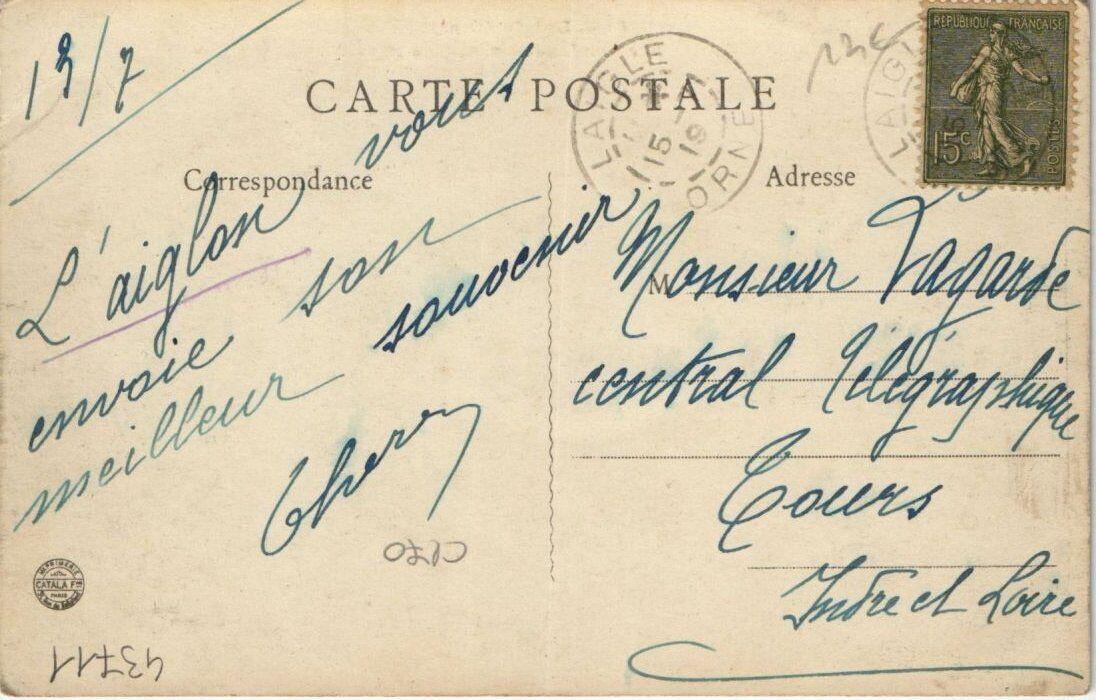 13/7
CARTE POSTALE
Correspondance
L'aiglon vous
envoie son
meilleur souvenir
LAIGLE
15
19
ORNE
LAIGL
REPUBLIQUE FRANÇAISE
15c
POSTES
Adresse
M
Monsieur Lagarde
central Télégraphique
Tours
Indre et Loire
IMPRIMERIE
CATALA Fres
PARIS
43711